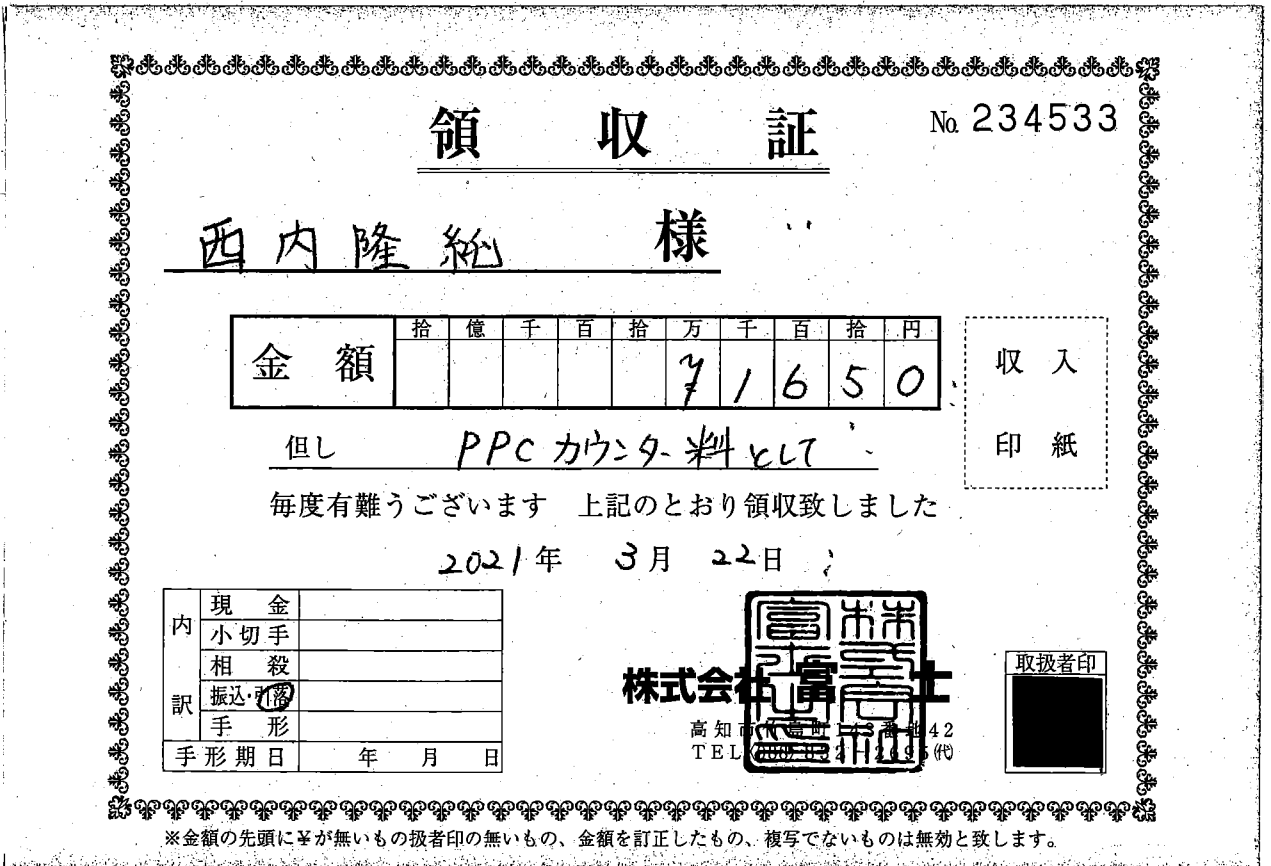 領収証
No. 234533
西内隆純 様
金額 拾 億 千 百 拾 万 千 百 拾 円
¥1650
収入
印紙
但し PPCカウンター料として
毎度有難うございます 上記のとおり領収致しました
2021年 3月 22日
内訳
現金
小切手
相殺
振込・引落
手形
手形期日 年 月 日
株式会社富士
高知市 町 番地42
TEL (代)
取扱者印
※金額の先頭に¥が無いもの扱者印の無いもの、金額を訂正したもの、複写でないものは無効と致します。